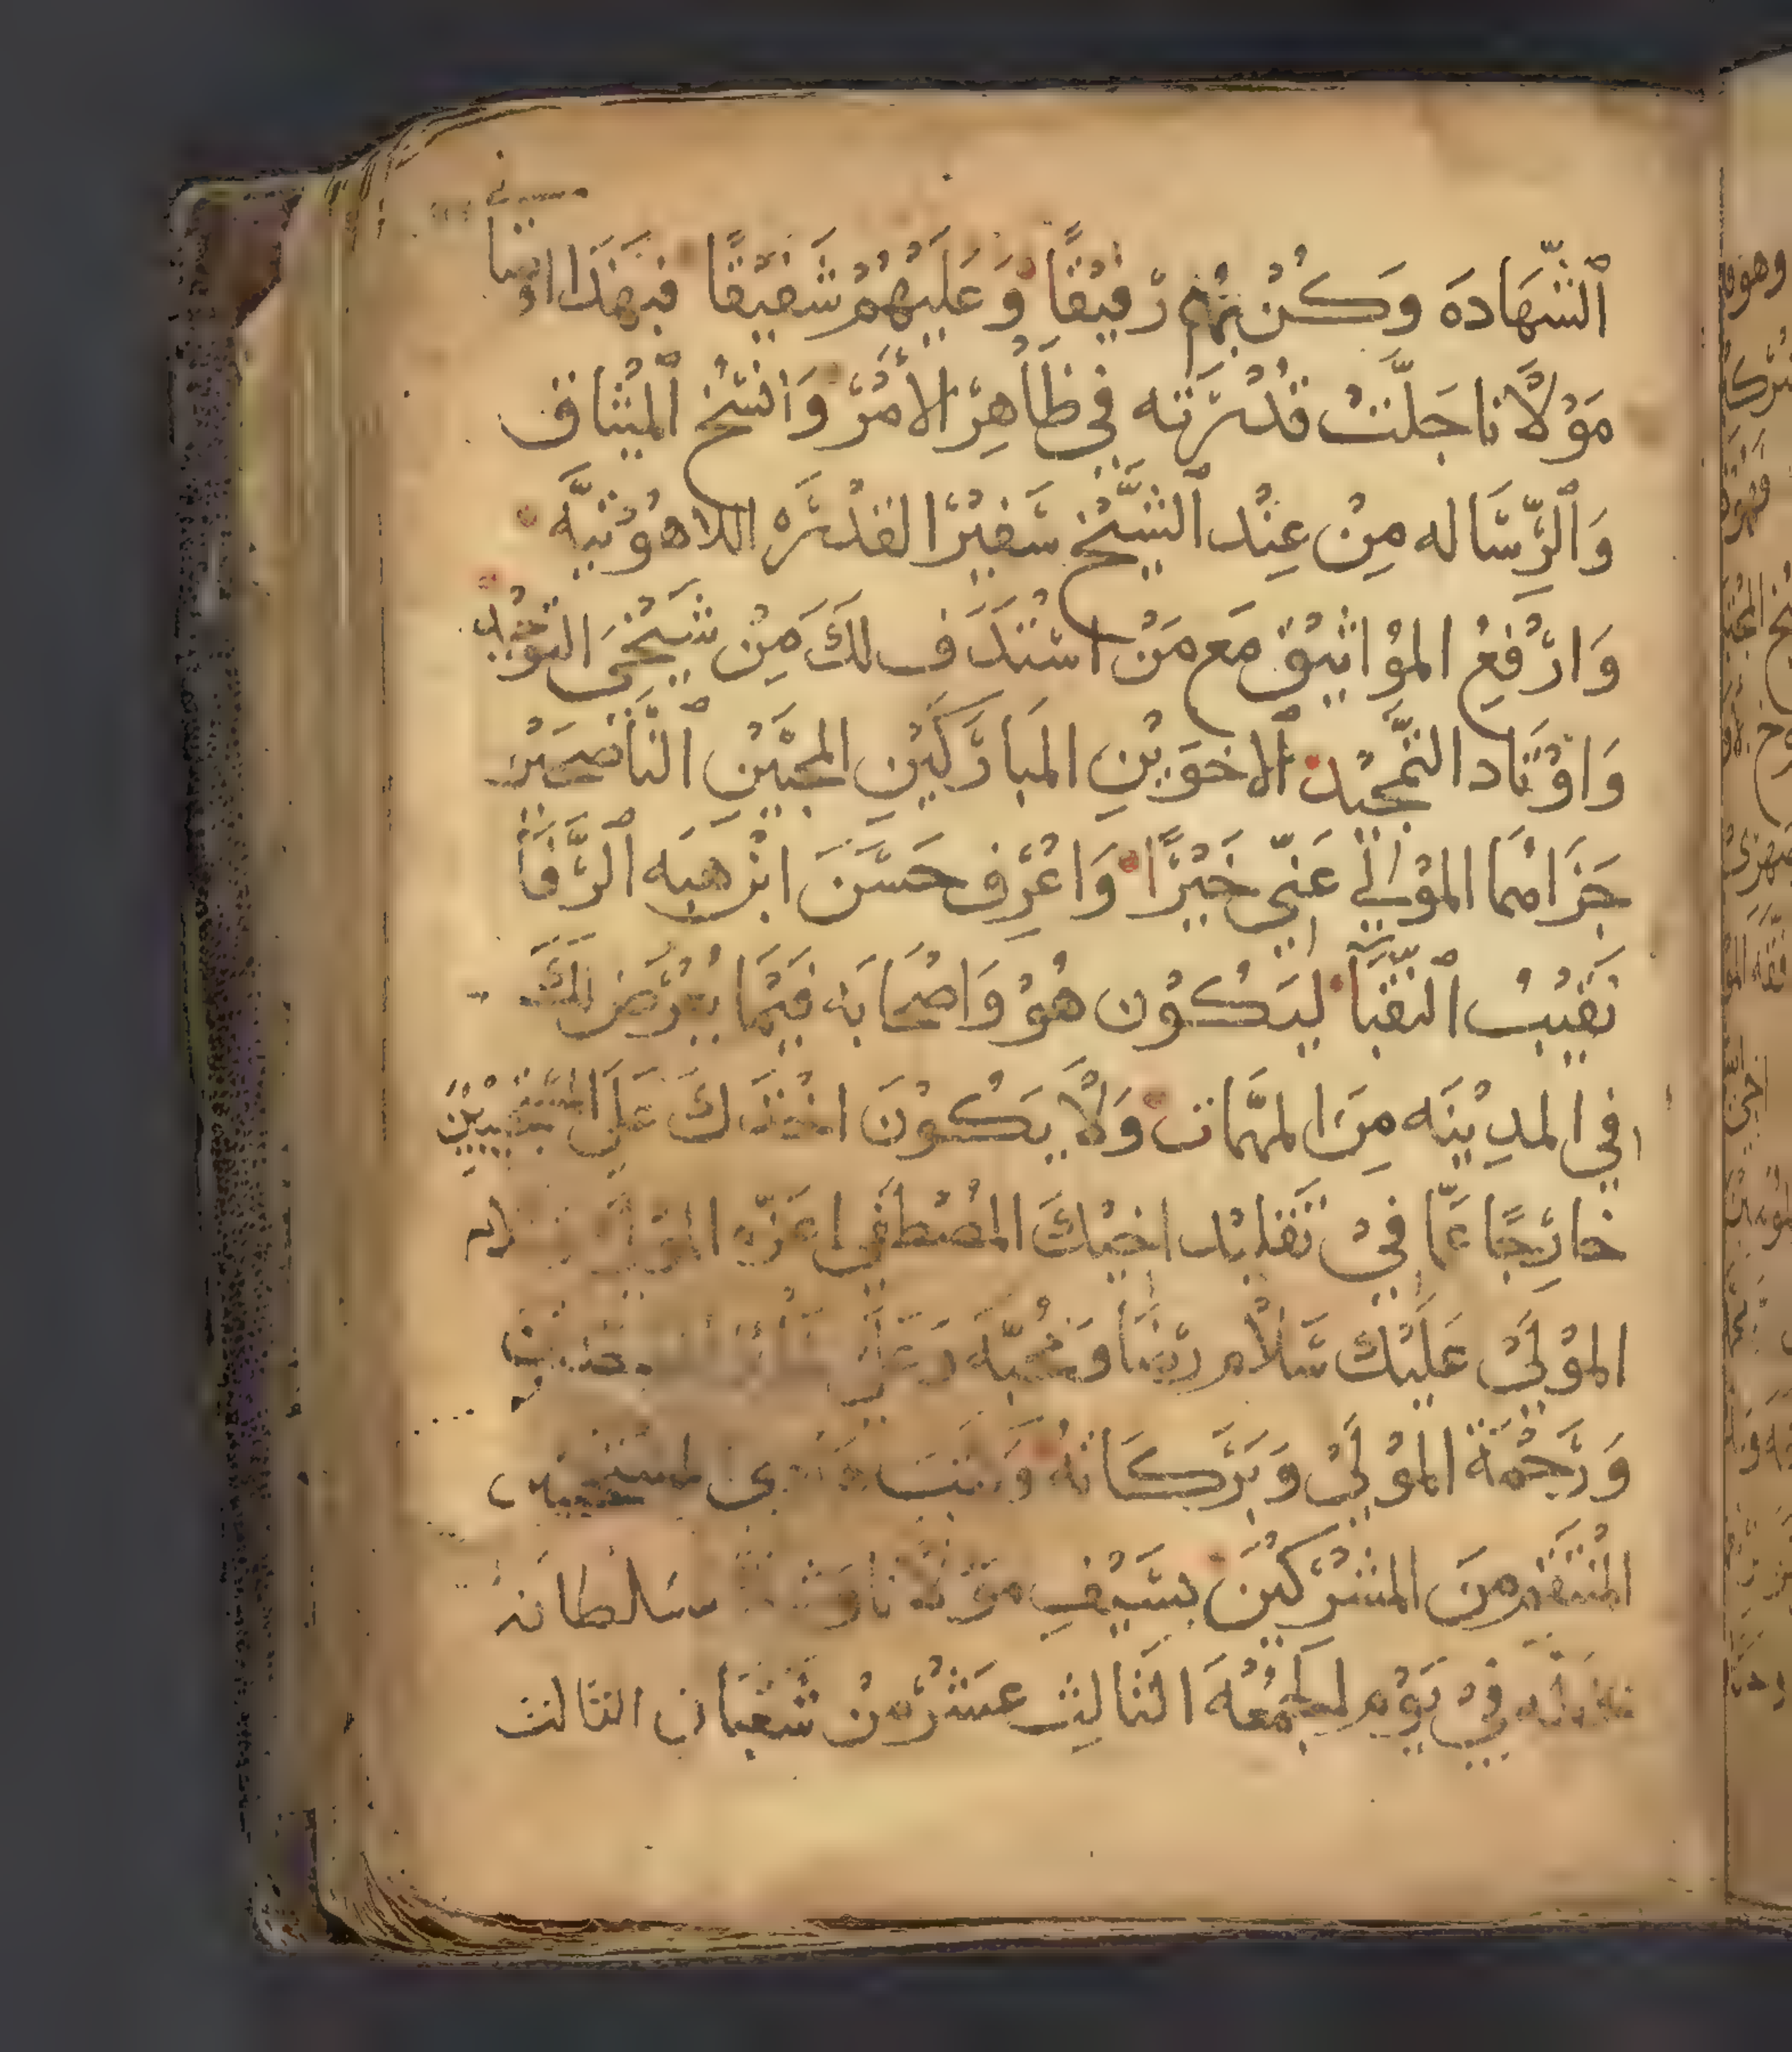 ٱلشَّهَادَه وَكُنْ بِهُم رَفِيْقاً وَعَلَيْهُمْ شَفِيْقًا فَبِهَذَا
مَوْلَانَا جَلَّتْ قُدْرَتَه فِي ظَاهِرِ الأَمْرِ وَانْسَخْ ٱلمِيْثَاق
وَٱلرِّسَاله مِنْ عِنْد ٱلشَّيْخ سَفِيْر القُدْرَه اللاهُوْتيَّه
وَارْفَعِ المُوْاثِيْق مَع مَنْ اسْتَدَف لَكَ مِنْ شَيْخَي التَّوْحِيْد
وَاوْتَاد التَّمْجِيْد ٱلاخَوَيْنِ المَبَارَكَيْنِ المحِبَّيْنِ النَّاصِحَيْنِ
جَزَاهُمَا المُوْلَي عَنِّي خَيْرًا وَاعْرِف حَسَّنَ ابْن هِبَه ٱلرَّفَّا
نَقِيْبُ ٱلنُقَبَا لِيَكُوْن هُوْ وَاصْحَابَه فِيْمَا يُعْرَض لَكَ
فِي المدِيْنَه مِنَ المهِّمَات وَلَا يَكُوْنَ اخْذَكَ عَلَي المُسْتَجِيْبِيْنَ
خَارِجًا عَمَّا فِيْ تَقْلِيْد اخِيْكَ المُصْطَفَى اعَزّه المَوْلَى
المُوْلَى عَلَيْك سَلَام رِضَا وَمُحَبَّه
وَرَحْمَةُ المُوْلَى وَبَرَكَاتُهُ وَكَتَبَ هَادِي المسْتَجِيْبِيْن
المُنْتَقِم مِنَ المشْرِكِيْنَ بِسَيْفِ مَوْلَانَا وَشِدَّة سُلْطَانَهُ
فِيْ يَوْم الجُمْعُهَ الثَالِث عَشَرْ مِنْ شَعْبَان الثَالث